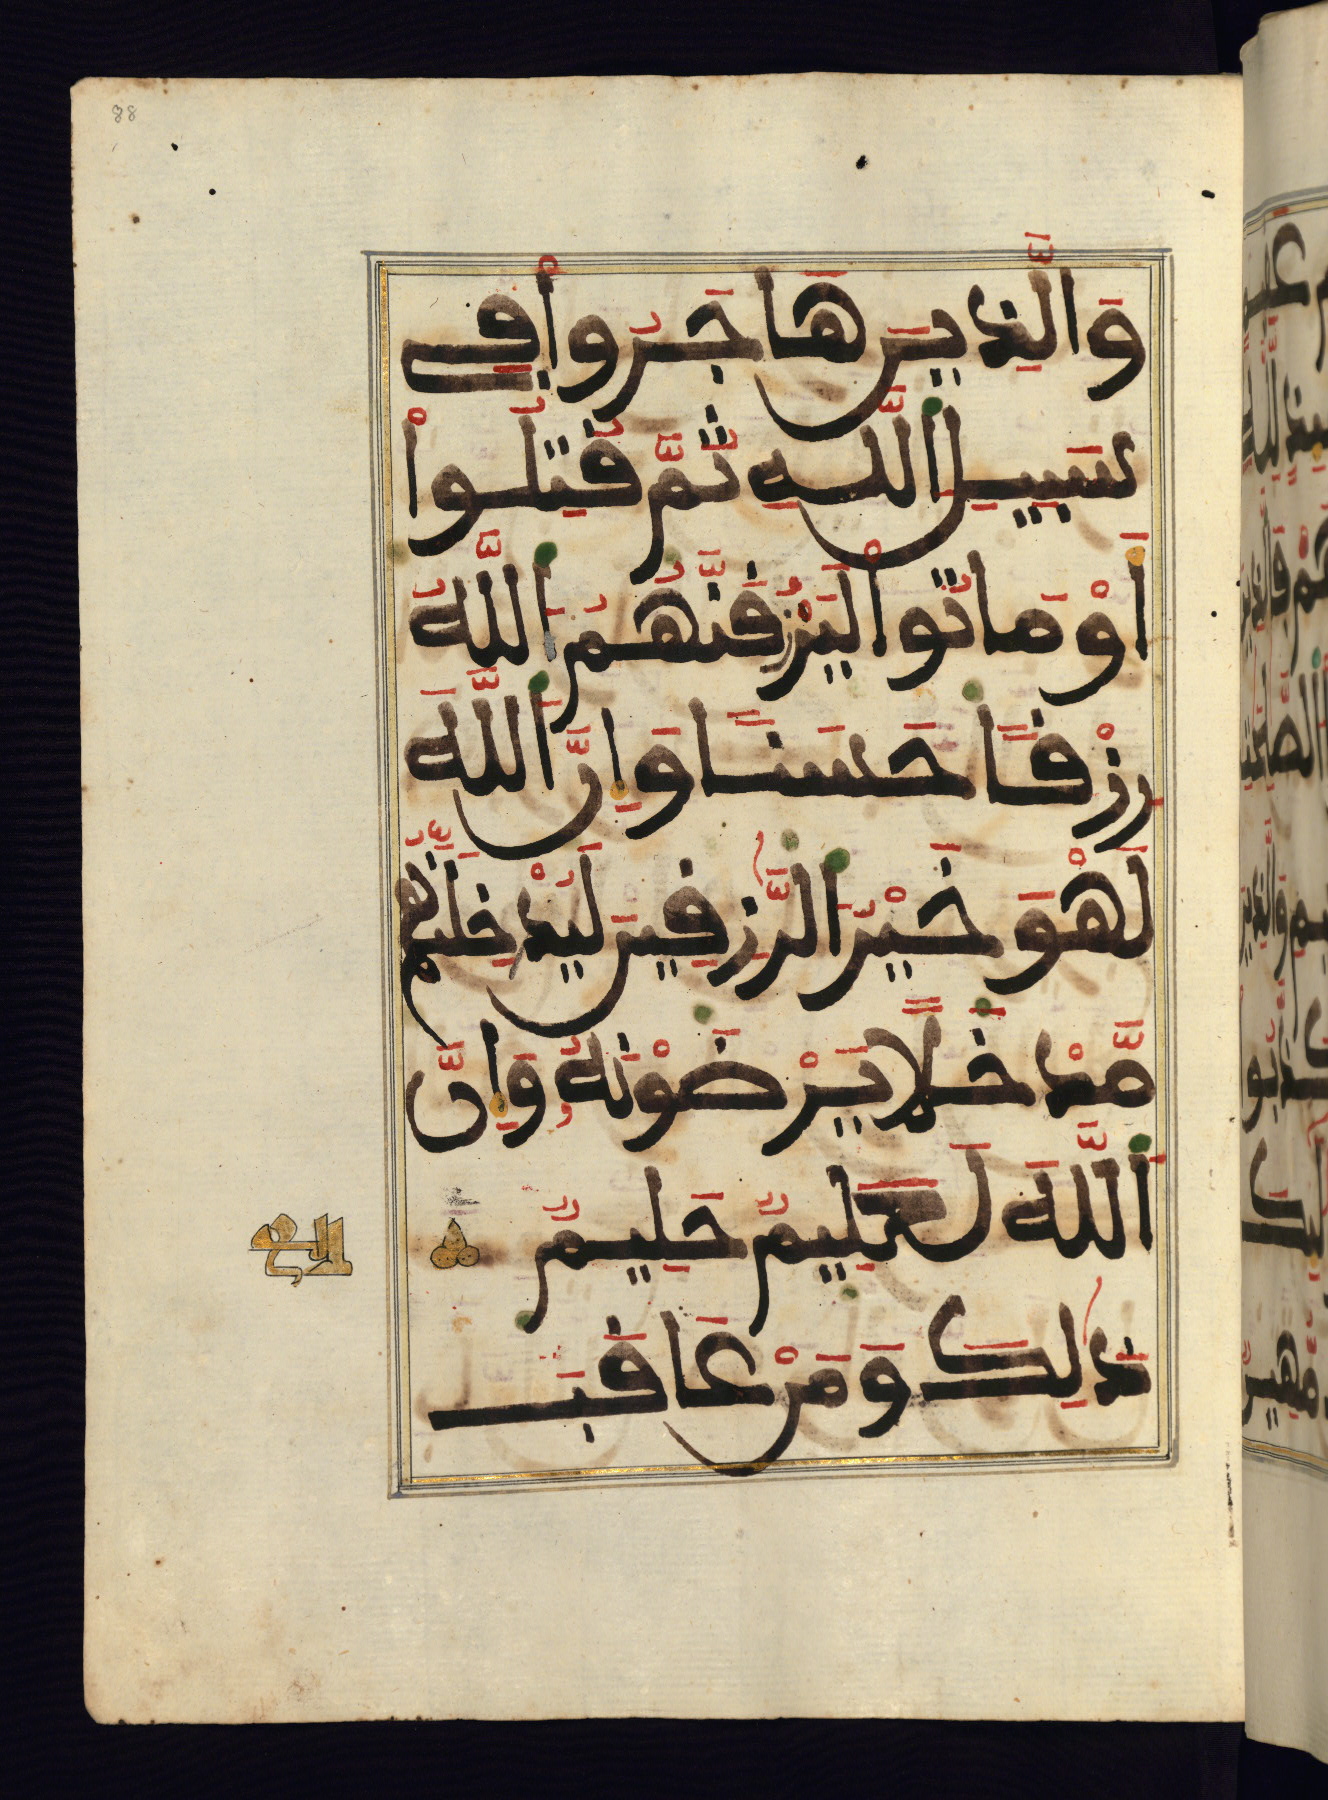 88
وَالَّذِينَ هَاجَرُواْ فِي
سَبِيلِ اللَّهِ ثُمَّ قُتِلُواْ
أَوْ مَاتُواْ لَيَرْزُقَنَّهُمُ اللَّهُ
رِزْقًا حَسَنًا وَإِنَّ اللَّهَ
لَهْوَ خَيْرُ الرَّٰزِقِينَ لَيُدْخِلَنَّهُم
مَّدْخَلًا يَرْضَوْنَهُ وَإِنَّ
اللَّهَ لَعَلِيمٌ حَلِيمٌ
ذَٰلِكَ وَمَنْ عَاقَبَ